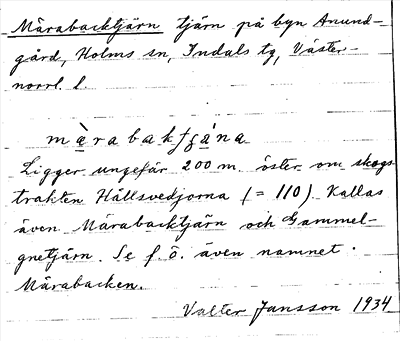 Märabacktjärn tjärn på byn Anund-
gård, Holms sn, Indals tg, Väster-
norrl. l.
märabaktjä́na
Ligger ungefär 200 m. öster om skogs
trakten Hällsvedjorna (= 110). Kallas
även Märabacktjärn och Gammel-
gnetjärn. Se f. ö. även namnet
Märabacken.
Valter Jansson 1934